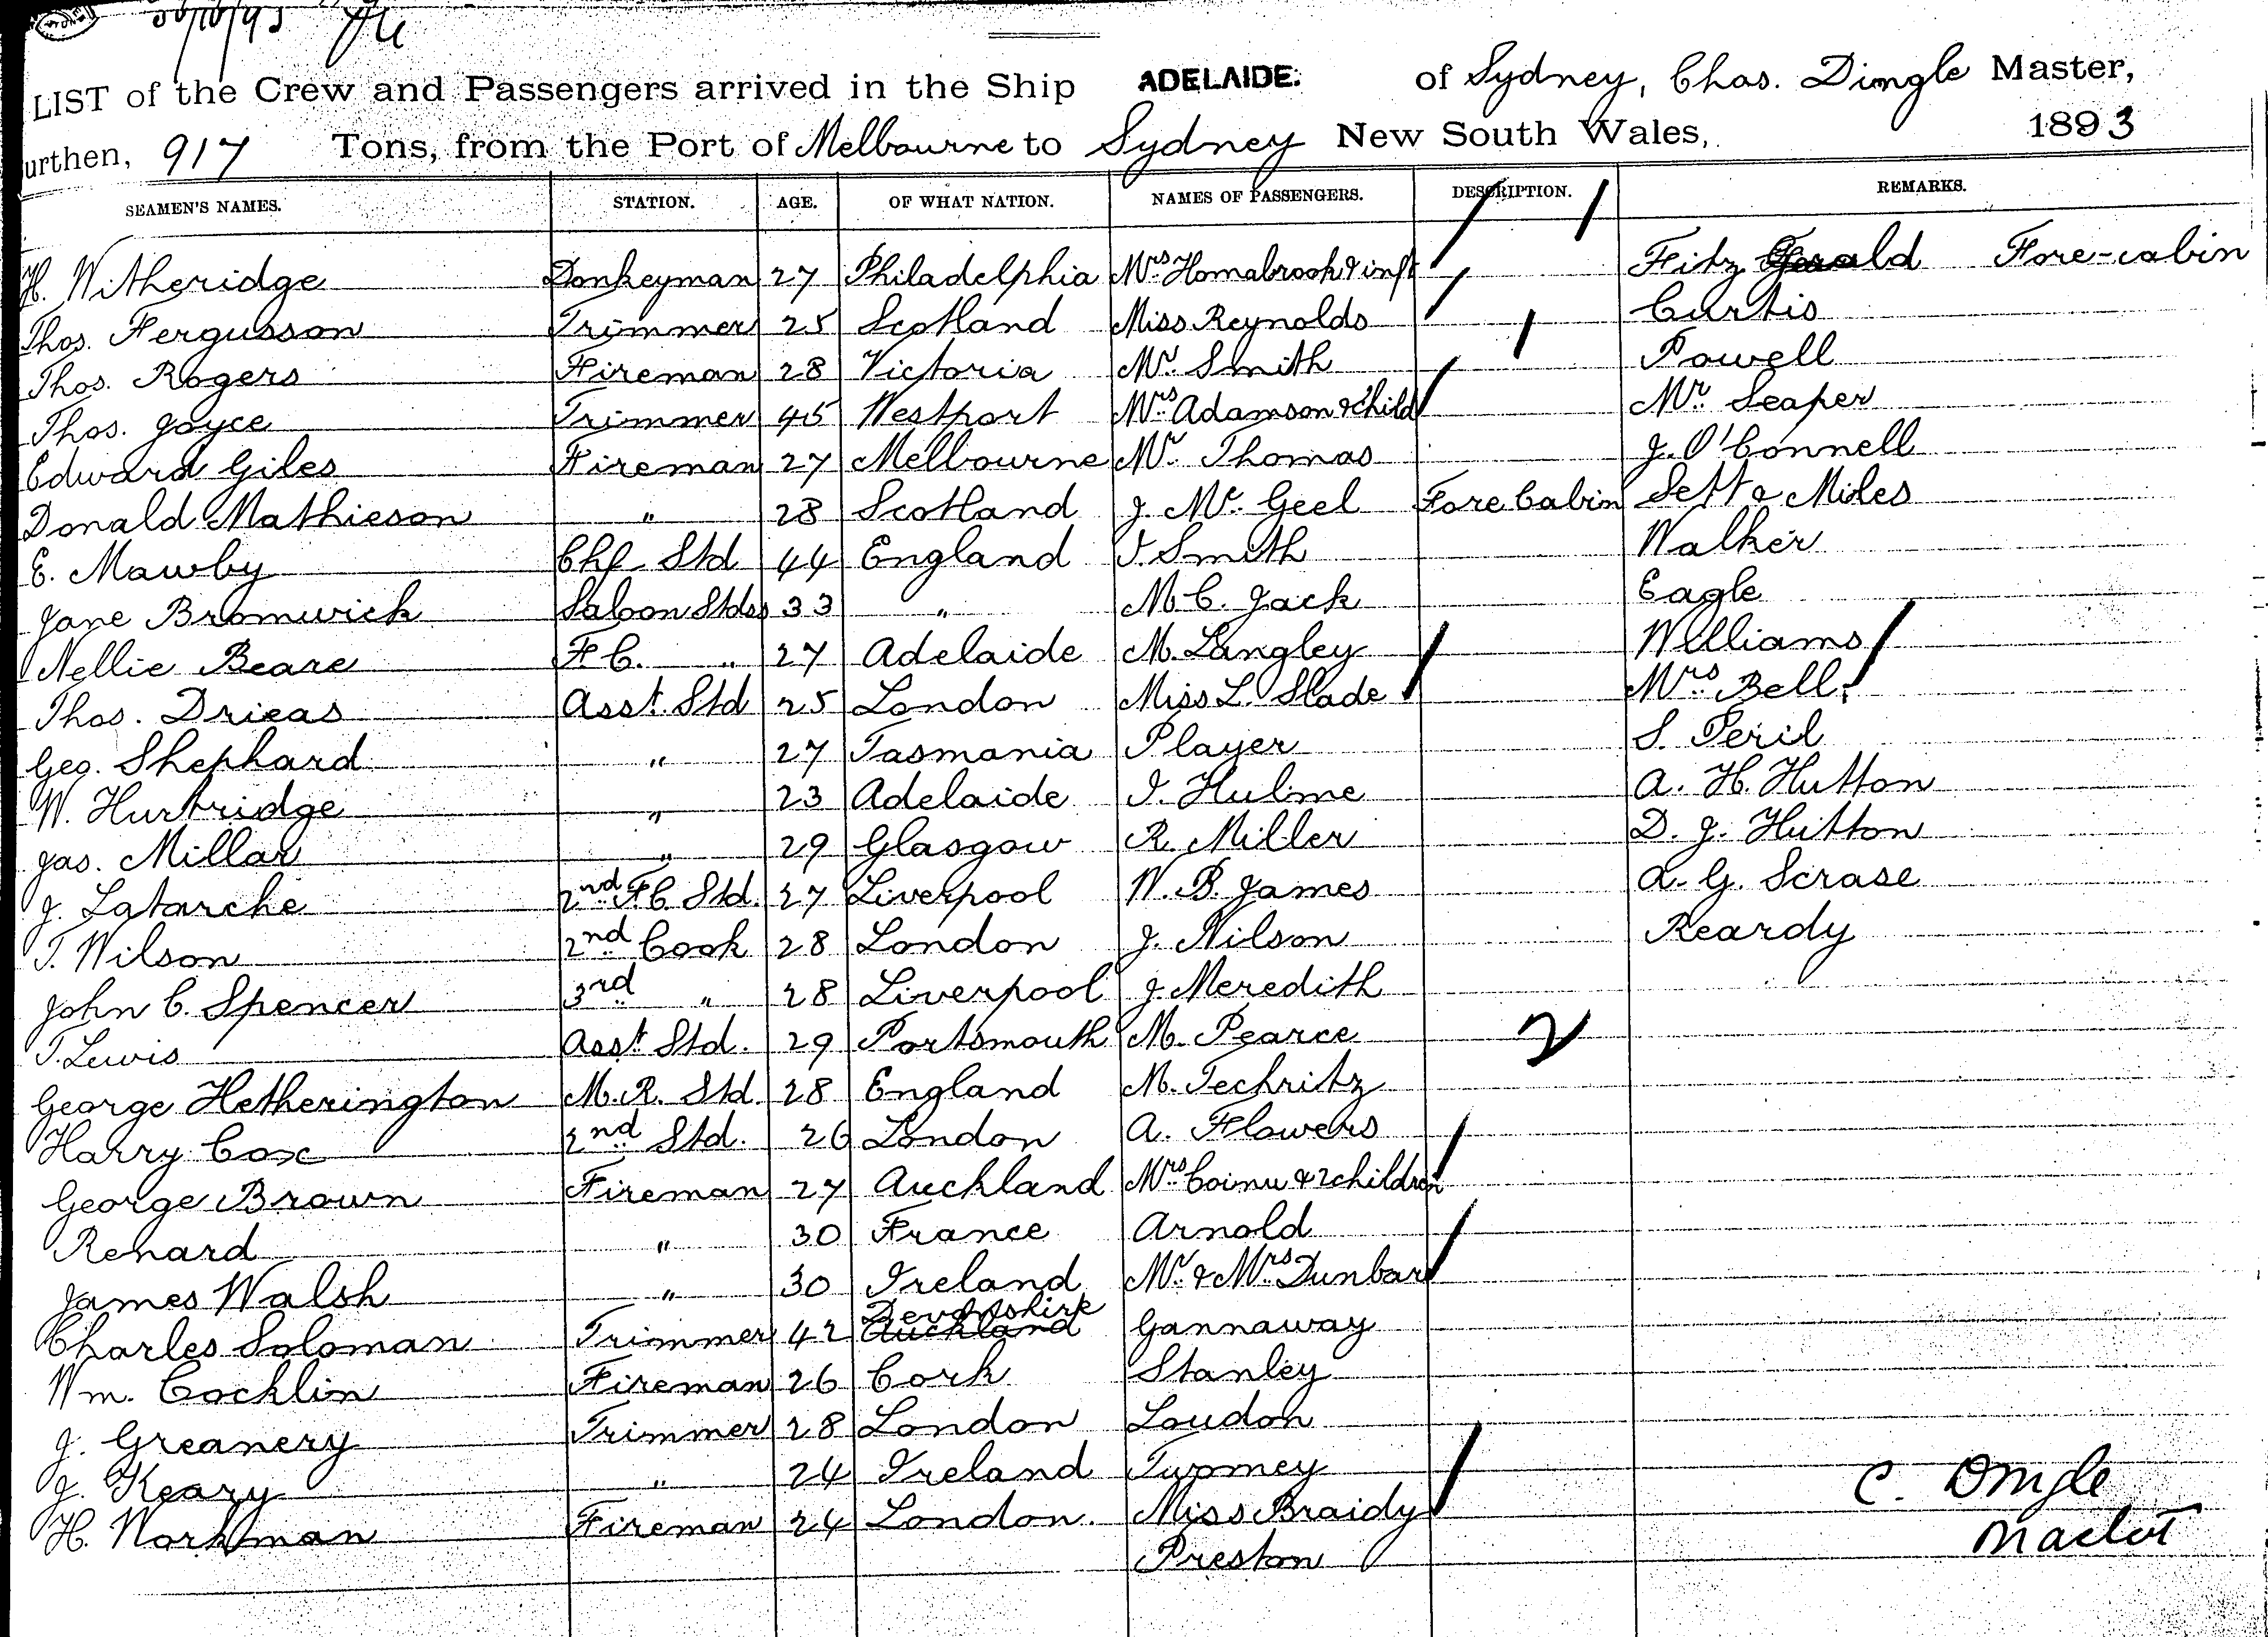 LIST of the Crew and Passengers arrived in the Ship ADELAIDE. of Sydney, Chas. Dingle Master,
urthen, 917 Tons, from the Port of Melbourne to Sydney New South Wales, 1893
SEAMEN'S NAMES. STATION. AGE. OF WHAT NATION. NAMES OF PASSENGERS. DESCRIPTION. REMARKS.
H. Witheridge Donkeyman 27 Philadelphia Mrs Hornabrook & inft Fitz Gerald Fore-cabin
Thos. Fergusson Trimmer 25 Scotland Miss Reynolds Curtis
Thos. Rogers Fireman 28 Victoria Mr. Smith Powell
Thos. Joyce Trimmer 45 Westport Mrs Adamson & child Mr. Seaper
Edward Giles Fireman 27 Melbourne Mr. Thomas J. O'Connell
Donald Mathieson " 28 Scotland J. Mc. Geel Fore Cabin Sett & Miles
E. Mawby Chf Std 44 England J. Smith Walker
Jane Bromwich Saloon Stdss 33 " M. C. Jack Eagle
Nellie Beare F C. " 27 Adelaide M. Langley Williams
Thos. Drieas Asst. Std 25 London Miss L. Slade Mrs Bell
Geo. Shephard " 27 Tasmania Player S. Peril
W. Hurtridge " 23 Adelaide J. Hulme A. H. Hutton
Jas. Millar " 29 Glasgow R. Miller D. J. Hutton
J. Latarche 2nd F C Std. 27 Liverpool W. B. James A. G. Scrase
T. Wilson 2nd Cook 28 London J. Nilson Reardy
John C. Spencer 3rd " 28 Liverpool J. Meredith
T. Lewis Asst Std. 29 Portsmouth M. Pearce 2
George Hetherington M. R. Std. 28 England M. Techritz
Harry Cox 2nd Std. 26 London A. Flowers
George Brown Fireman 27 Auckland Mrs & 2 children
Renard " 30 France Arnold
James Walsh " 30 Ireland Mr. & Mrs Dunbar
Charles Soloman Trimmer 42 Auckland Devonshire Gannaway
Wm. Cocklin Fireman 26 Cork Stanley
J. Greanery Trimmer 28 London Loudon
J. Keary " 24 Ireland Twomey
H. Workman Fireman 24 London. Miss Braidy
Preston
C. Dingle
Master